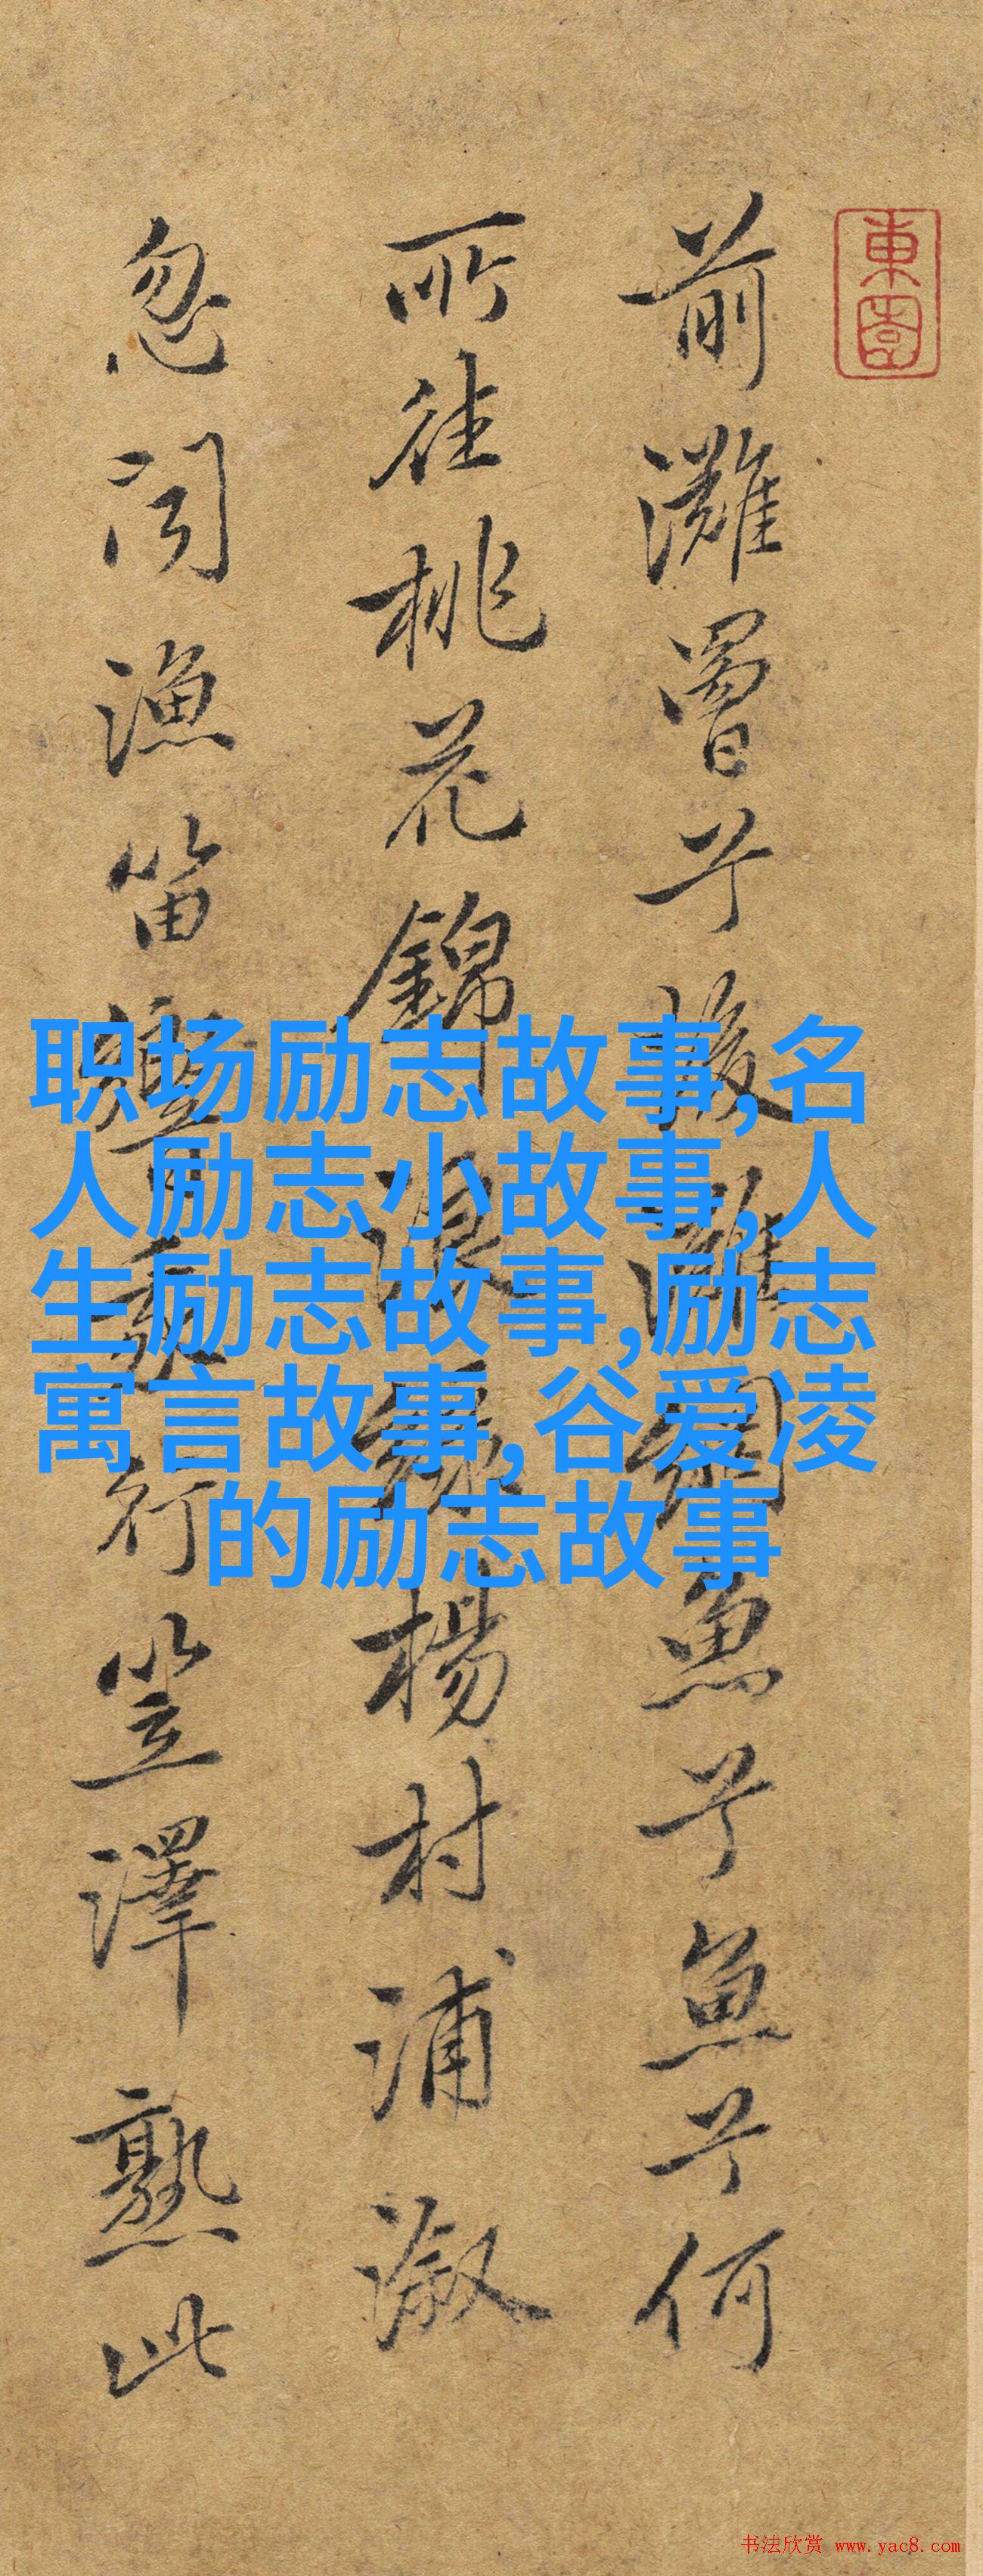 東
前灘罾兮後灘網魚兮魚兮何
所往桃花錦浪綠楊村浦溆
忽聞漁笛行笠澤熟此
职场励志故事,名
人励志小故事,人
生励志故事,励志
寓言故事,谷爱凌
的励志故事
书法欣赏 www.yac8.com